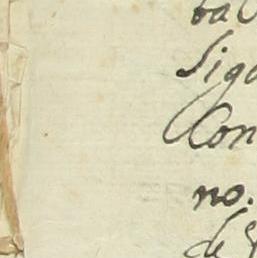 ba
Sigo
Con
no.
de